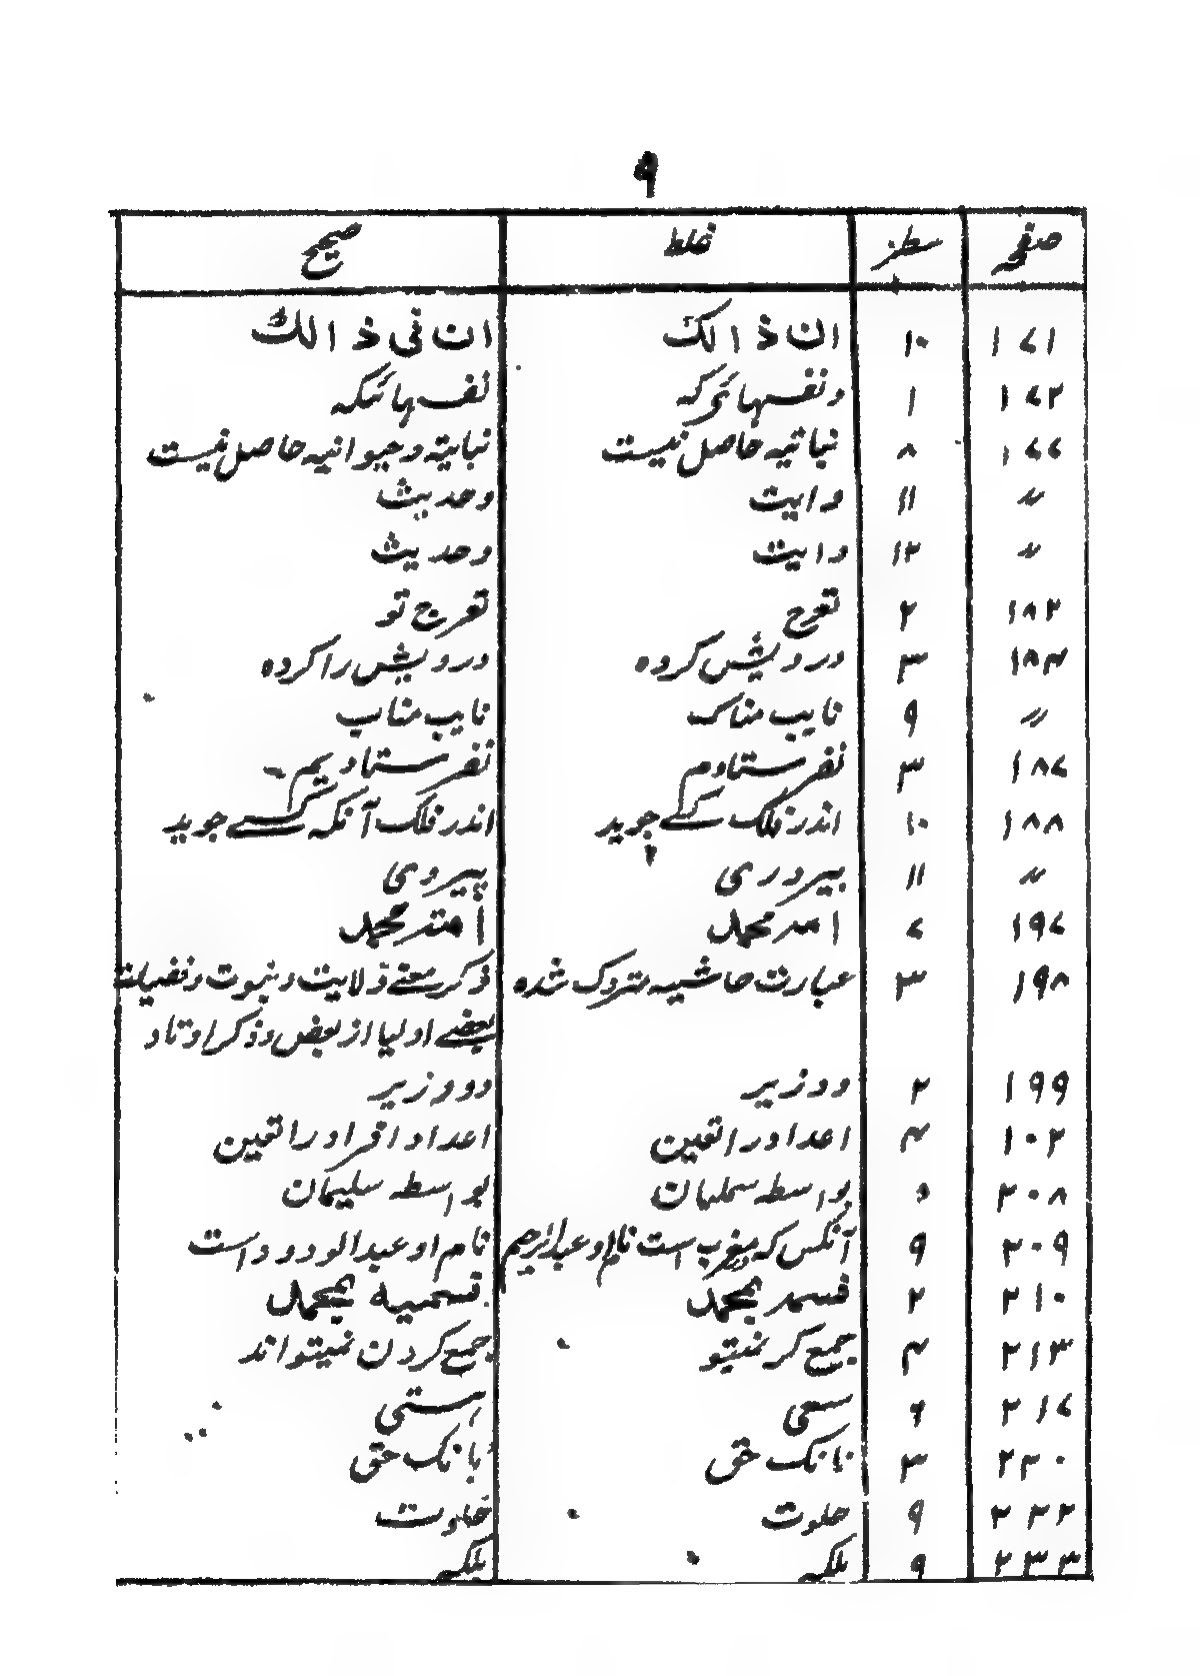 ۹
صفحہ سطر غلط صحیح
۱۷۱ ۱۰ ان ذالک ان فی ذالک
۱۷۲ ۱ ونفسہائی کہ نفسہائیکہ
۱۷۷ ۸ نباتیہ حاصل نیست نباتیہ وحیوانیہ حاصل نیست
〃 ۱۱ وایت وحدیث
〃 ۱۲ وایت وحدیث
۱۸۲ ۲ تعرج تعرج تو
۱۸۴ ۳ درویش کردہ درویش را کردہ
〃 ۹ نایب مناک نایب مناب
۱۸۷ ۳ نفرستادم نفرستادیم
۱۸۸ ۱۰ اندر فلک کسے جوید اندر فلک آنکہ کسے جوید
〃 ۱۱ بیروری پیروی
۱۹۷ ۷ امر محمد امتہ محمد
۱۹۸ ۳ عبارت حاشیہ متروک شدہ ذکر معنے ولایت ونبوت وفضیلت
بعضے اولیا از بعض وذکر اوتاد
۱۹۹ ۲ ووزیر دو وزیر
۱۰۲ ۴ اعداد را تعین اعداد افراد را تعین
۲۰۸ ۵ بواسطہ سملیان بواسطہ سلیمان
۲۰۹ ۹ آنکس کہ در مغرب است نام او عبدالرحیم نام او عبدالودود است
۲۱۰ ۲ قسمہ بمحمد تسمیہ بمحمد
۲۱۳ ۴ جمع کر نمیتو جمع کردن نمیتواند
۲۱۷ ۶ سعی ہستی
۲۳۰ ۳ نانک حق بانک حق
۲۳۲ ۹ حلوت خلوت
۲۳۳ ۹ بلکہ بلکہ